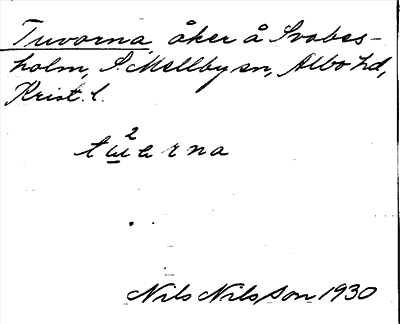 Tuvorna, åker å Svabes-
holm, S. Mellby sn, Albo hd,
Krist. l.
Nils Nilsson 1930